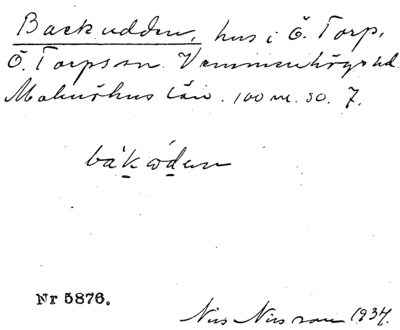 Backudden, hus i Ö. Torp,
Ö. Torps sn. Vemmenhögs hd.
Malmöhus län. 100 m. SO. 7.
båkọ́den
Nr 5876.
Nils Nilsson 1934.